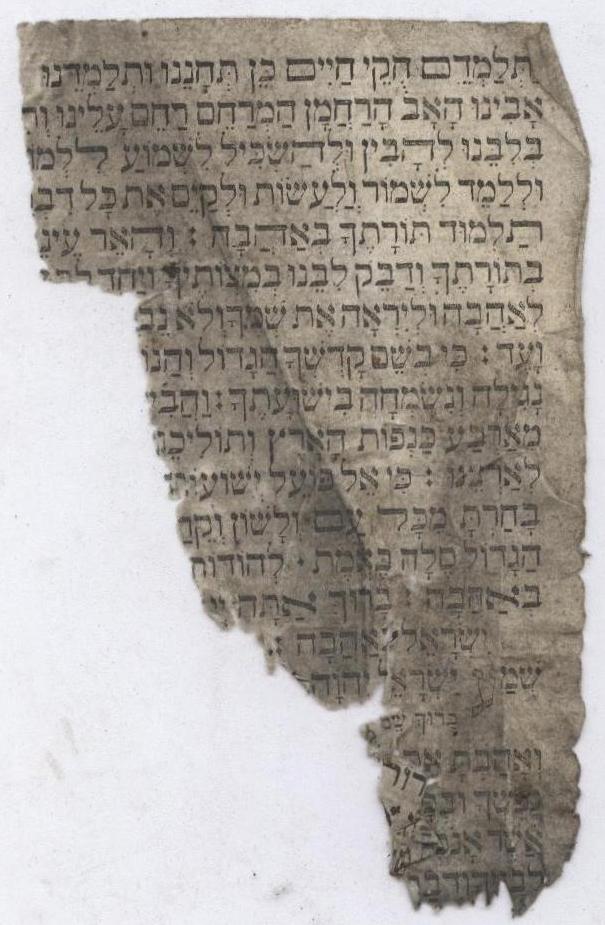 תְלַמְדֵם חֻקֵי חַיִים כֵן תְחָנֵנוּ וּתְלַמְדֵנוּ
אָבִינוּ הָאָב הָרַחֲמָן הַמְרַחֵם רַחֵם עָלֵינוּ
בְלִבֵנוּ לְהָבִין וּלְהַשְׂכִּיל לִשְׁמוֹעַ לִלְמוֹ
וּלְלַמֵד לִשְׁמוֹר וְלַעֲשׂוֹת וּלְקַיֵם אֶת כָל דִבְ
הַתַלְמוּד תּוֹרָתֶךָ בְאַהֲבָה : וְהָאֵר עֵינֵ
בְתוֹרָתֶךָ וְדַבֵק לִבֵנוּ בְמִצְוֹתֶיךָ וְיַחֵד לְבָ
לְאַהֲבָה וּלְיִרְאָה אֶת שְׁמֶךָ וְלֹא נֵב
וָעֶד : כִי בְשֵׁם קָדְשְׁךָ הַגָדוֹל וְהַנוֹ
נָגִילָה וְנִשְׂמְחָה בִישׁוּעָתֶךָ : וַהֲבִי
מֵאַרְבַע כַנְפוֹת הָאָרֶץ וְתוֹלִיכֵנ
לְאַרְצֵנוּ : כִי אֵל פּוֹעֵל יְשׁוּעוֹת
בָחַרְתָ מִכָל עָם וְלָשׁוֹן וְקֵ
הַגָדוֹל סֶלָה בֶאֱמֶת · לְהוֹדוֹת
בְאַהֲבָה : בָרוּךְ אַתָה יְיָ
יִשְׂרָאֵל בְאַהֲבָה :
שְׁמַע יִשְׂרָאֵ יְהוָה
בָרוּךְ שֵׁם
וְאָהַבְתָ אֵ
נַפְשְׁךָ וּבְכָ
אֲשֶׁר אָנֹכִ